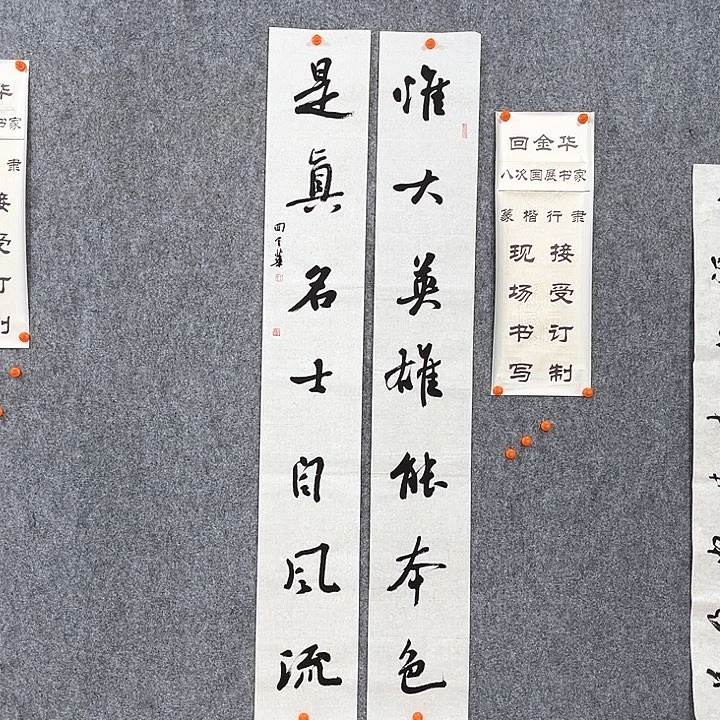 惟大英雄能本色
是真名士自风流
回金華
回金华
八次国展书家
篆楷行隶
接受订制
现场书写
华
书家
隶
接受订制